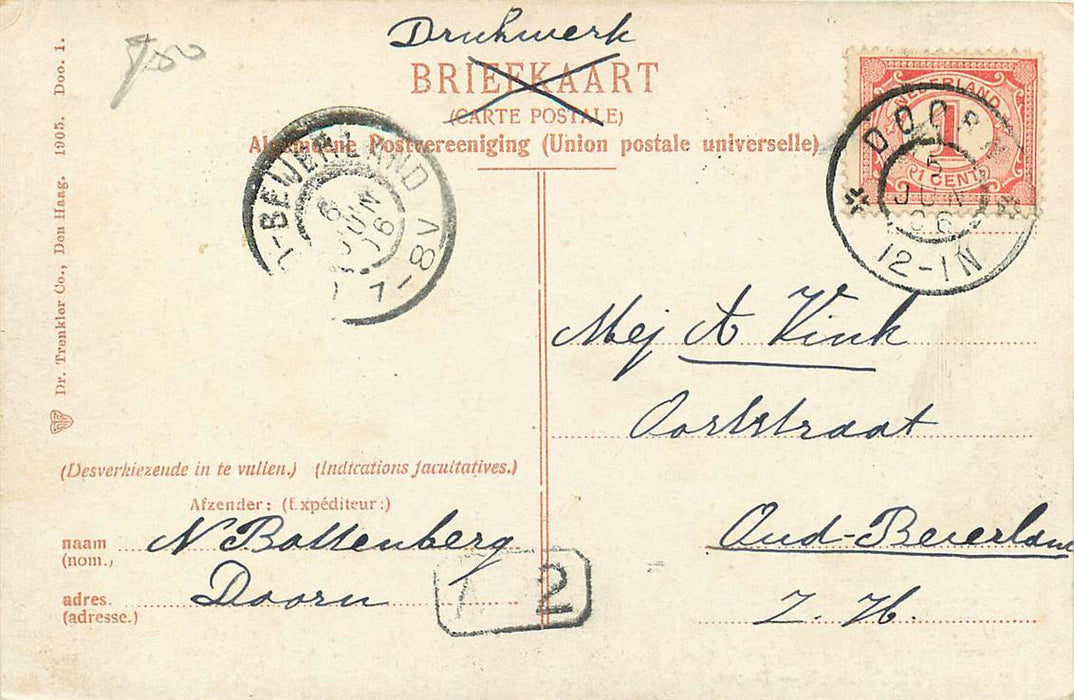 Drukwerk
BRIEFKAART
(CARTE POSTALE)
Algemeene Postvereeniging (Union postale universelle)
NEDERLAND
1
1 CENT
DOORN
5
JUN
06
12-1N
-BEIJERLAND
6
JUN
06
7-8V
Dr. Trenkler Co., Den Haag. 1905. Doo. 1.
Mej A Vink
Ooststraat
Oud-Beierland
Z. H.
(Desverkiezende in te vullen.) (Indications facultatives.)
Afzender: (Expéditeur:)
naam N Bottenberg
(nom.)
adres. Doorn
(adresse.)
2